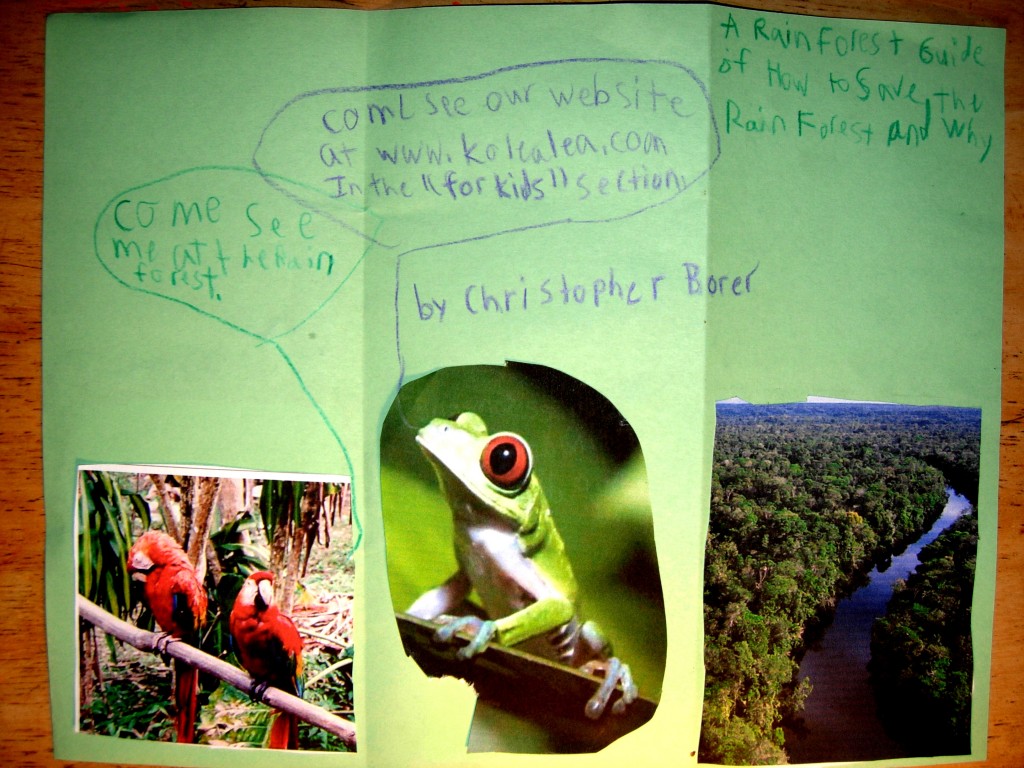 come see our website
at www.kolealea.com
In the "for kids" section.
come see
me at the Rain
forest.
by Christopher Borer
A Rain Forest Guide
of How to Save The
Rain Forest and Why